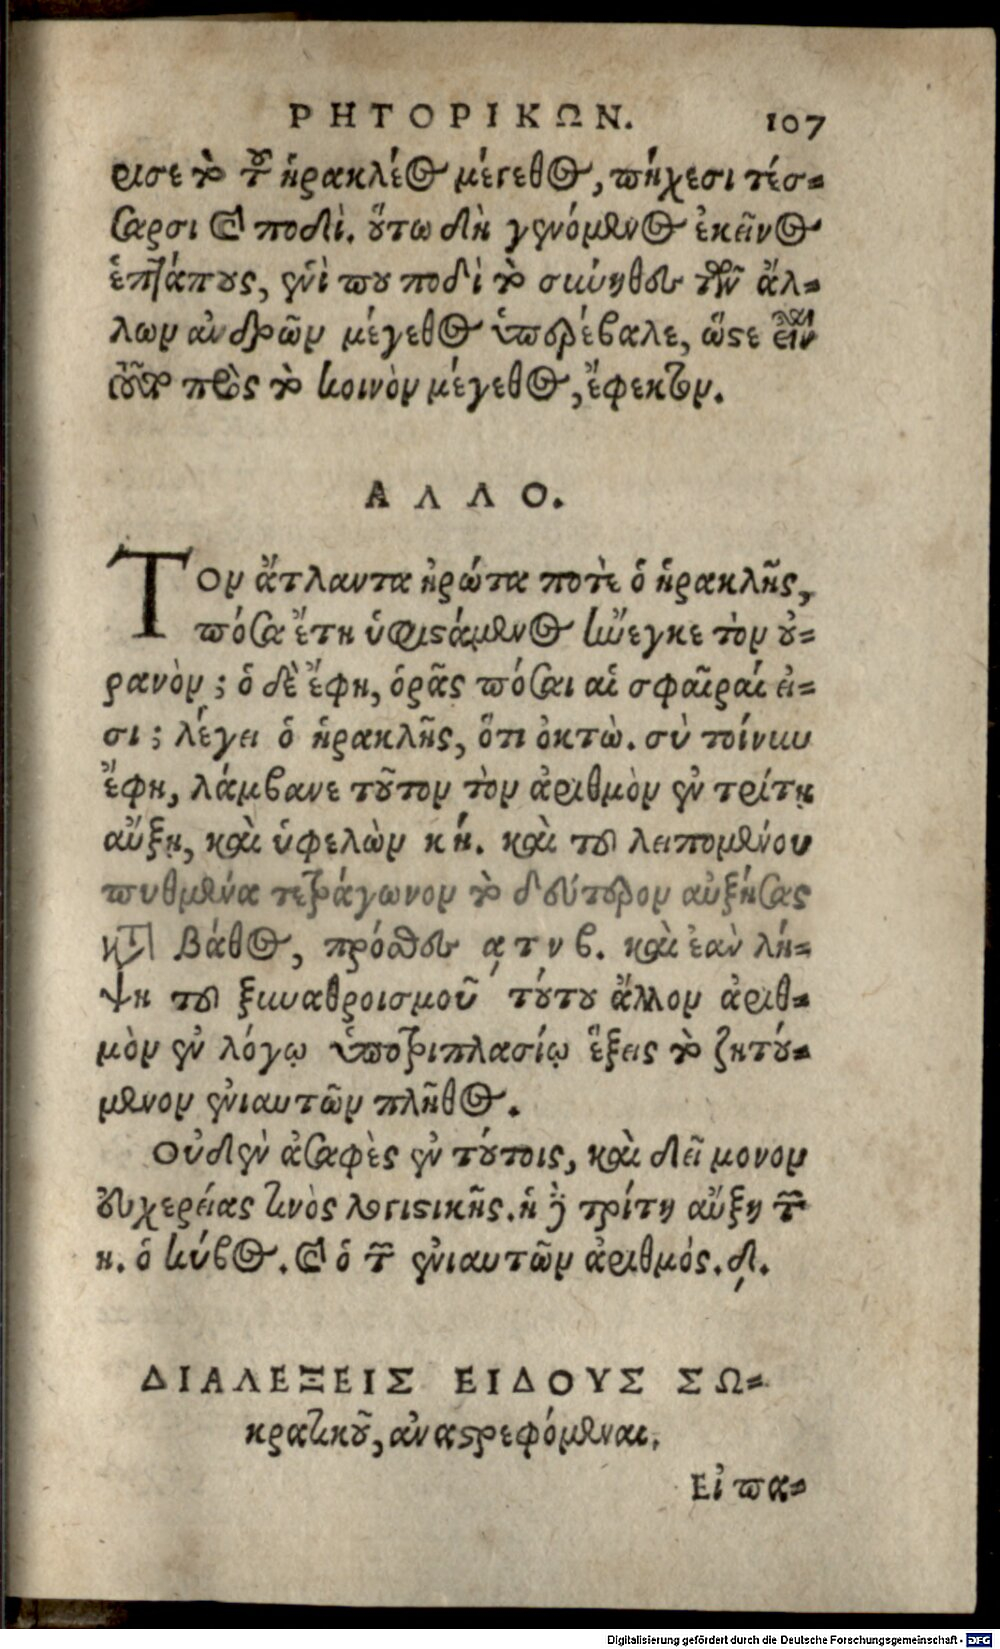 ΡΗΤΟΡΙΚΩΝ. 107
ρισε τὸ τοῦ ἡρακλέος μέγεθος, πήχεσι τέσ-
σαρσι καὶ ποδί. οὕτω δὴ γενόμενος ἐκεῖνος
ἑπτάπους, ἑνί που ποδὶ τὸ σύνηθες τῶν ἄλ-
λων ἀνδρῶν μέγεθος ὑπερέβαλε, ὥστε εἶναι
πρὸς τὸ κοινὸν μέγεθος, ἔφεκτον.
ΑΛΛΟ.
Τὸν ἄτλαντα ἠρώτα ποτὲ ὁ ἡρακλῆς,
πόσα ἔτη ὑφιστάμενος ἤνεγκε τὸν οὐ-
ρανόν; ὁ δὲ ἔφη, ὁρᾶς πόσαι αἱ σφαῖραί εἰ-
σι; λέγει ὁ ἡρακλῆς, ὅτι ὀκτὼ. σὺ τοίνυν
ἔφη, λάμβανε τοῦτον τὸν ἀριθμὸν ἐν τρίτῃ
αὔξῃ, καὶ ὑφελὼν κή. καὶ τοῦ λειπομένου
πυθμένα τετράγωνον τὸ δεύτερον αὐξήσας
κατὰ βάθος, πρόσθες ͵ατνβ. καὶ ἐὰν λή-
ψῃ τοῦ ξυναθροισμοῦ τούτου ἄλλον ἀριθ-
μὸν ἐν λόγῳ ὑποτριπλασίῳ ἕξεις τὸ ζητού-
μενον ἐνιαυτῶν πλῆθος.
Οὐδὲν ἀσαφὲς ἐν τούτοις, καὶ δεῖ μόνον
εὐχερείας τινὸς λογιστικῆς. ἡ γὰρ τρίτη αὔξη τῶν
η. ὁ κύβος. καὶ ὁ τῶν ἐνιαυτῶν ἀριθμός. ͵δ.
ΔΙΑΛΕΞΕΙΣ ΕΙΔΟΥΣ ΣΩ-
κρατικοῦ, ἀναστρεφόμεναι.
Εἰ πα-
Digitalisierung gefördert durch die Deutsche Forschungsgemeinschaft - DFG